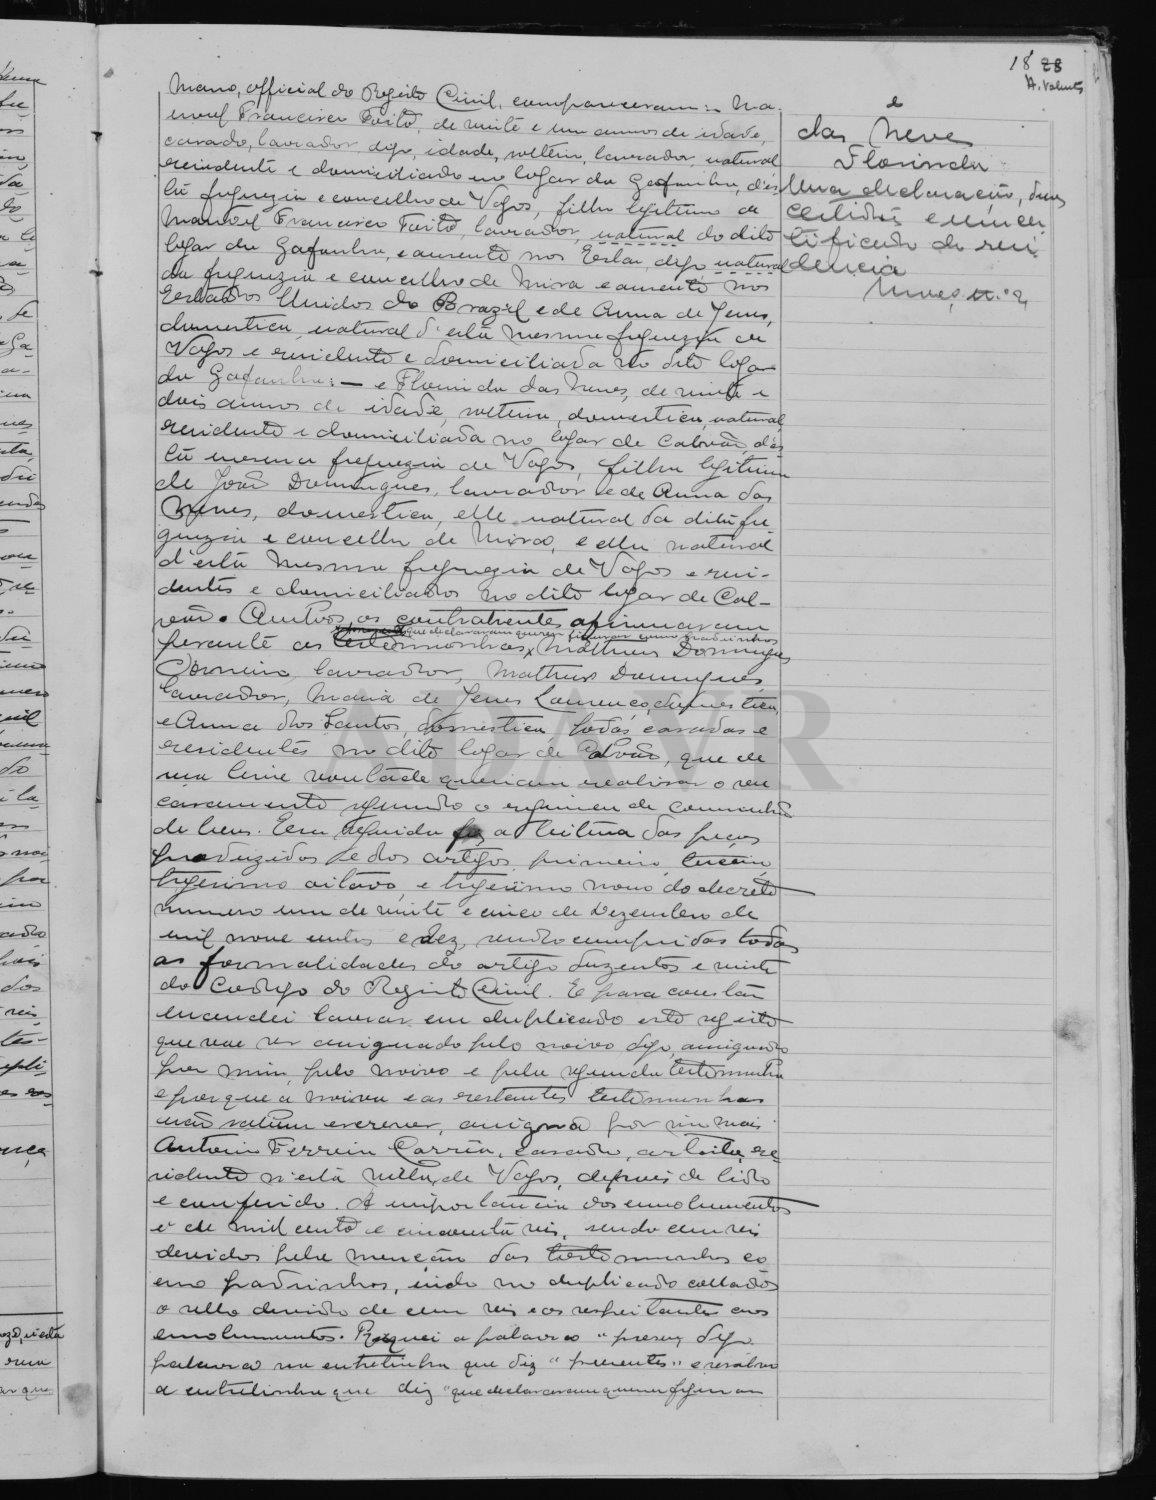 18 28
A. Valente
mano, official do Registo Civil, compareceram:- Ma-
noel Francisco Faito, de vinte e um annos de idade,
casado, lavrador, digo, idade, solteiro, lavrador, natural
residente e domiciliado no logar da Gafanha, d'es-
ta freguezia e concelho de Vagos, filho legitimo de
Manoel Francisco Faito, lavrador, natural do dito
logar da Gafanha, e ausente nos Estados, digo natural
da freguezia e concelho de Mira e ausente nos
Estados Unidos do Brazil e de Anna de Jesus,
domestica, natural d'esta mesma freguezia de
Vagos e residente e domiciliada no dito logar
da Gafanha: — e Florinda das Neves, de vinte e
dois annos de idade, solteira, domestica, natural,
residente e domiciliada no logar de Calvão d'es-
ta mesma freguezia de Vagos, filha legitima
de João Domingues, lavrador e de Anna das
Neves, domestica, elle natural da dita fre-
guezia e concelho de Mira, e ella natural
d'esta mesma freguezia de Vagos e resi-
dentes e domiciliados no dito logar de Cal-
vão. Ambos os contrahentes afirmaram
que declararam querer figurar como padrinhos
perante as testemunhas, Matheus Domingues
lavrador, Matheus Domingues,
lavrador, Maria de Jesus Lourenço, domestica,
e Anna dos Santos, domestica, todas casadas e
residentes no dito logar de Calvão, que de
sua livre vontade queriam realisar o seu
casamento segundo o regimen de comunhão
de bens. Em seguida fez a leitura das peças
produzidas e dos artigos primeiro, terceiro,
trigesimo oitavo, e trigesimo nono do decreto
numero um de vinte e cinco de Dezembro de
mil nove centos e dez, sendo cumpridas todas
as formalidades do artigo duzentos e vinte
do Codigo do Registo Civil. E para constar
mandei lavrar em duplicado este registo
que vae ser assignado pelo noivo digo, assignado
por mim, pelo noivo e pela segunda testemunha
e porque a noiva e as restantes testemunhas
não sabem escrever, assigna por ellas
Antonio Ferreira Corrêa, casado, artista, re-
sidente n'esta villa de Vagos, depois de lido
e conferido. A importancia dos emolumentos
é de mil cento e cincoenta reis, sendo cem reis
devidos pela menção das testemunhas co-
mo padrinhos, indo no duplicado collados
o sello devido de cem reis e os respeitantes aos
emolumentos. Rasguei a palavra "presen, digo
palavra na entrelinha que diz "presentes" e resalvo
a entrelinha que diz "que declararam querer figurar
e
das Neves
Florinda
Uma declaração, duas
certidões e um cer-
tificado de resi-
dencia
Maço n.º 2
ADAVR